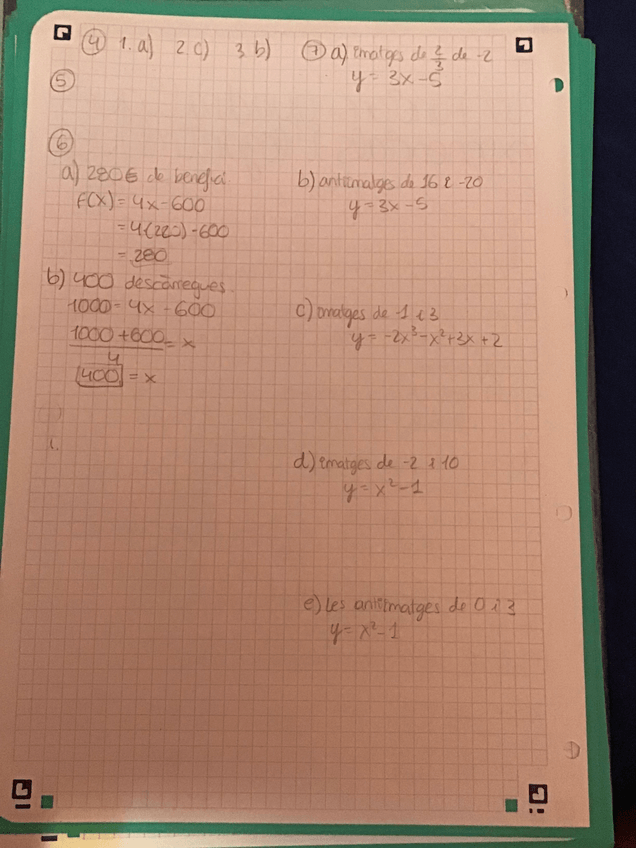 ④ 1. a) 2 c) 3 b)
⑤
⑥
a) 280€ de benefici
f(x) = 4x - 600
= 4(220) - 600
= 280
b) 400 descàrregues
1000 = 4x - 600
1000 + 600 / 4 = x
400 = x
⑦ a) Imatges de 2/3 de -2
y = 3x - 5
b) antiimatges de 16 i -20
y = 3x - 5
c) imatges de -1 i 3
y = -2x³ - x² + 3x + 2
d) imatges de -2 i 10
y = x² - 1
e) Les antiimatges de 0 i 3
y = x² - 1